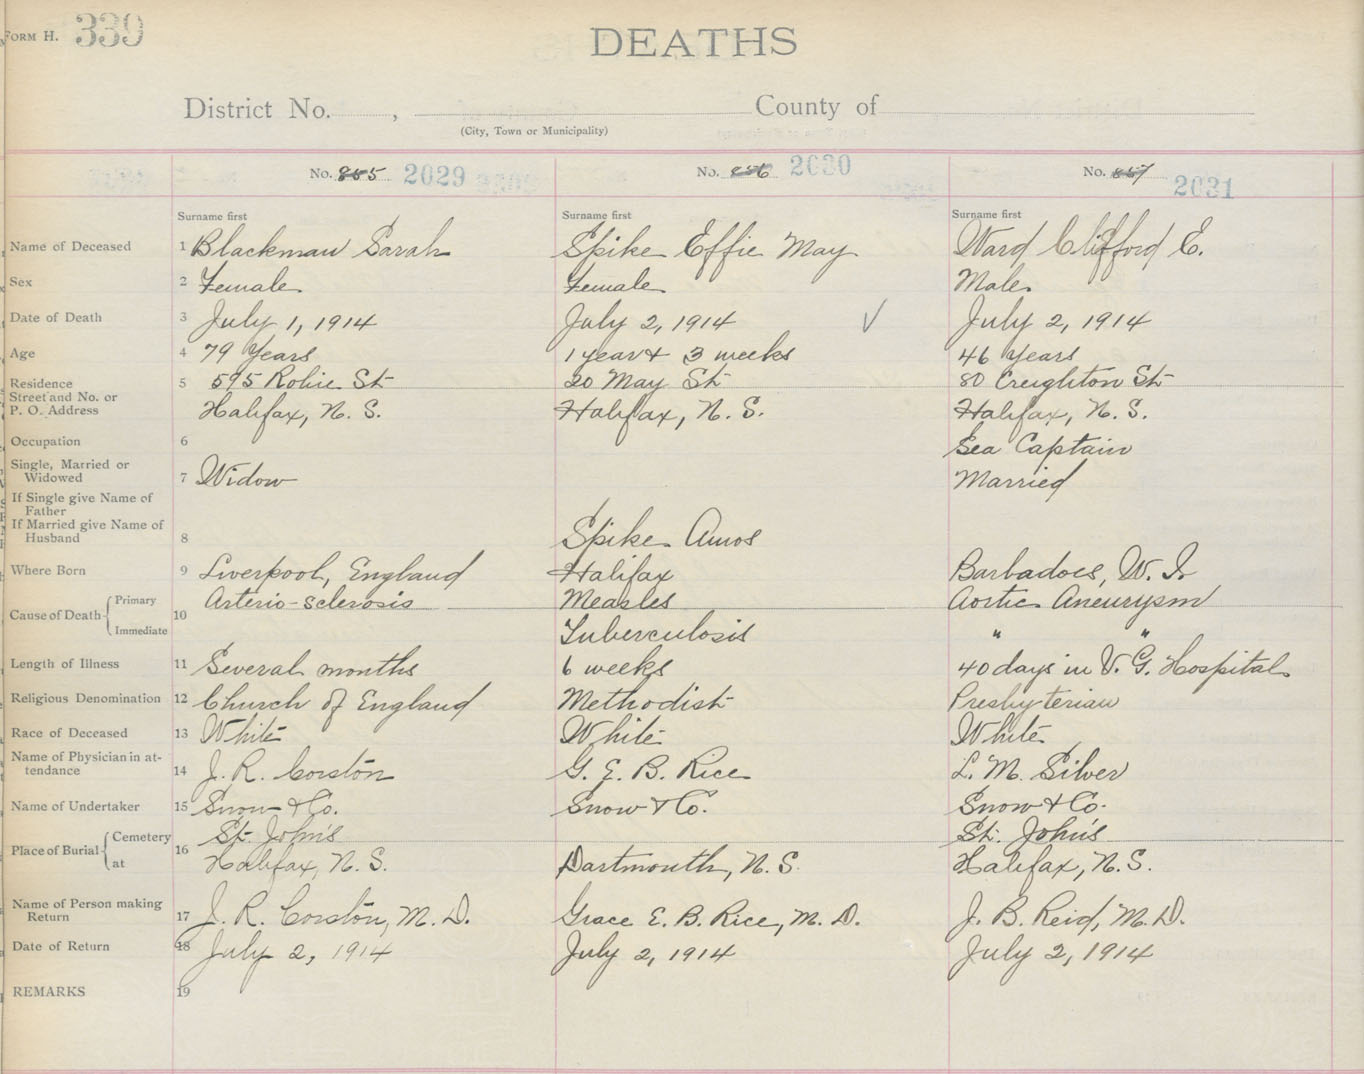 FORM H. 339
DEATHS
District No. , County of
(City, Town or Municipality)
No. 855 2029 No. 856 2030 No. 857 2031
Surname first Surname first Surname first
Name of Deceased 1 Blackman Sarah Spike Effie May Ward Clifford E.
Sex 2 Female Female Male
Date of Death 3 July 1, 1914 July 2, 1914 ✓ July 2, 1914
Age 4 79 Years 1 year & 3 weeks 46 Years
Residence 5 595 Robie St 20 May St 80 Creighton St
Street and No. or
P. O. Address Halifax, N. S. Halifax, N. S. Halifax, N. S.
Occupation 6 Sea Captain
Single, Married or
Widowed 7 Widow Married
If Single give Name of
Father
If Married give Name of
Husband 8 Spike Amos
Where Born 9 Liverpool, England Halifax Barbadoes, W. I.
Cause of Death Primary 10 Arterio-sclerosis Measles Aortic Aneurysm
Immediate Tuberculosis " "
Length of Illness 11 Several months 6 weeks 40 days in V. G. Hospital
Religious Denomination 12 Church of England Methodist Presbyterian
Race of Deceased 13 White White White
Name of Physician in at-
tendance 14 J. R. Corston G. E. B. Rice L. M. Silver
Name of Undertaker 15 Snow & Co. Snow & Co. Snow & Co.
Place of Burial Cemetery 16 St. John's St. John's
at Halifax, N. S. Dartmouth, N. S. Halifax, N. S.
Name of Person making
Return 17 J. R. Corston, M. D. Grace E. B. Rice, M. D. J. B. Reid, M. D.
Date of Return 18 July 2, 1914 July 2, 1914 July 2, 1914
REMARKS 19